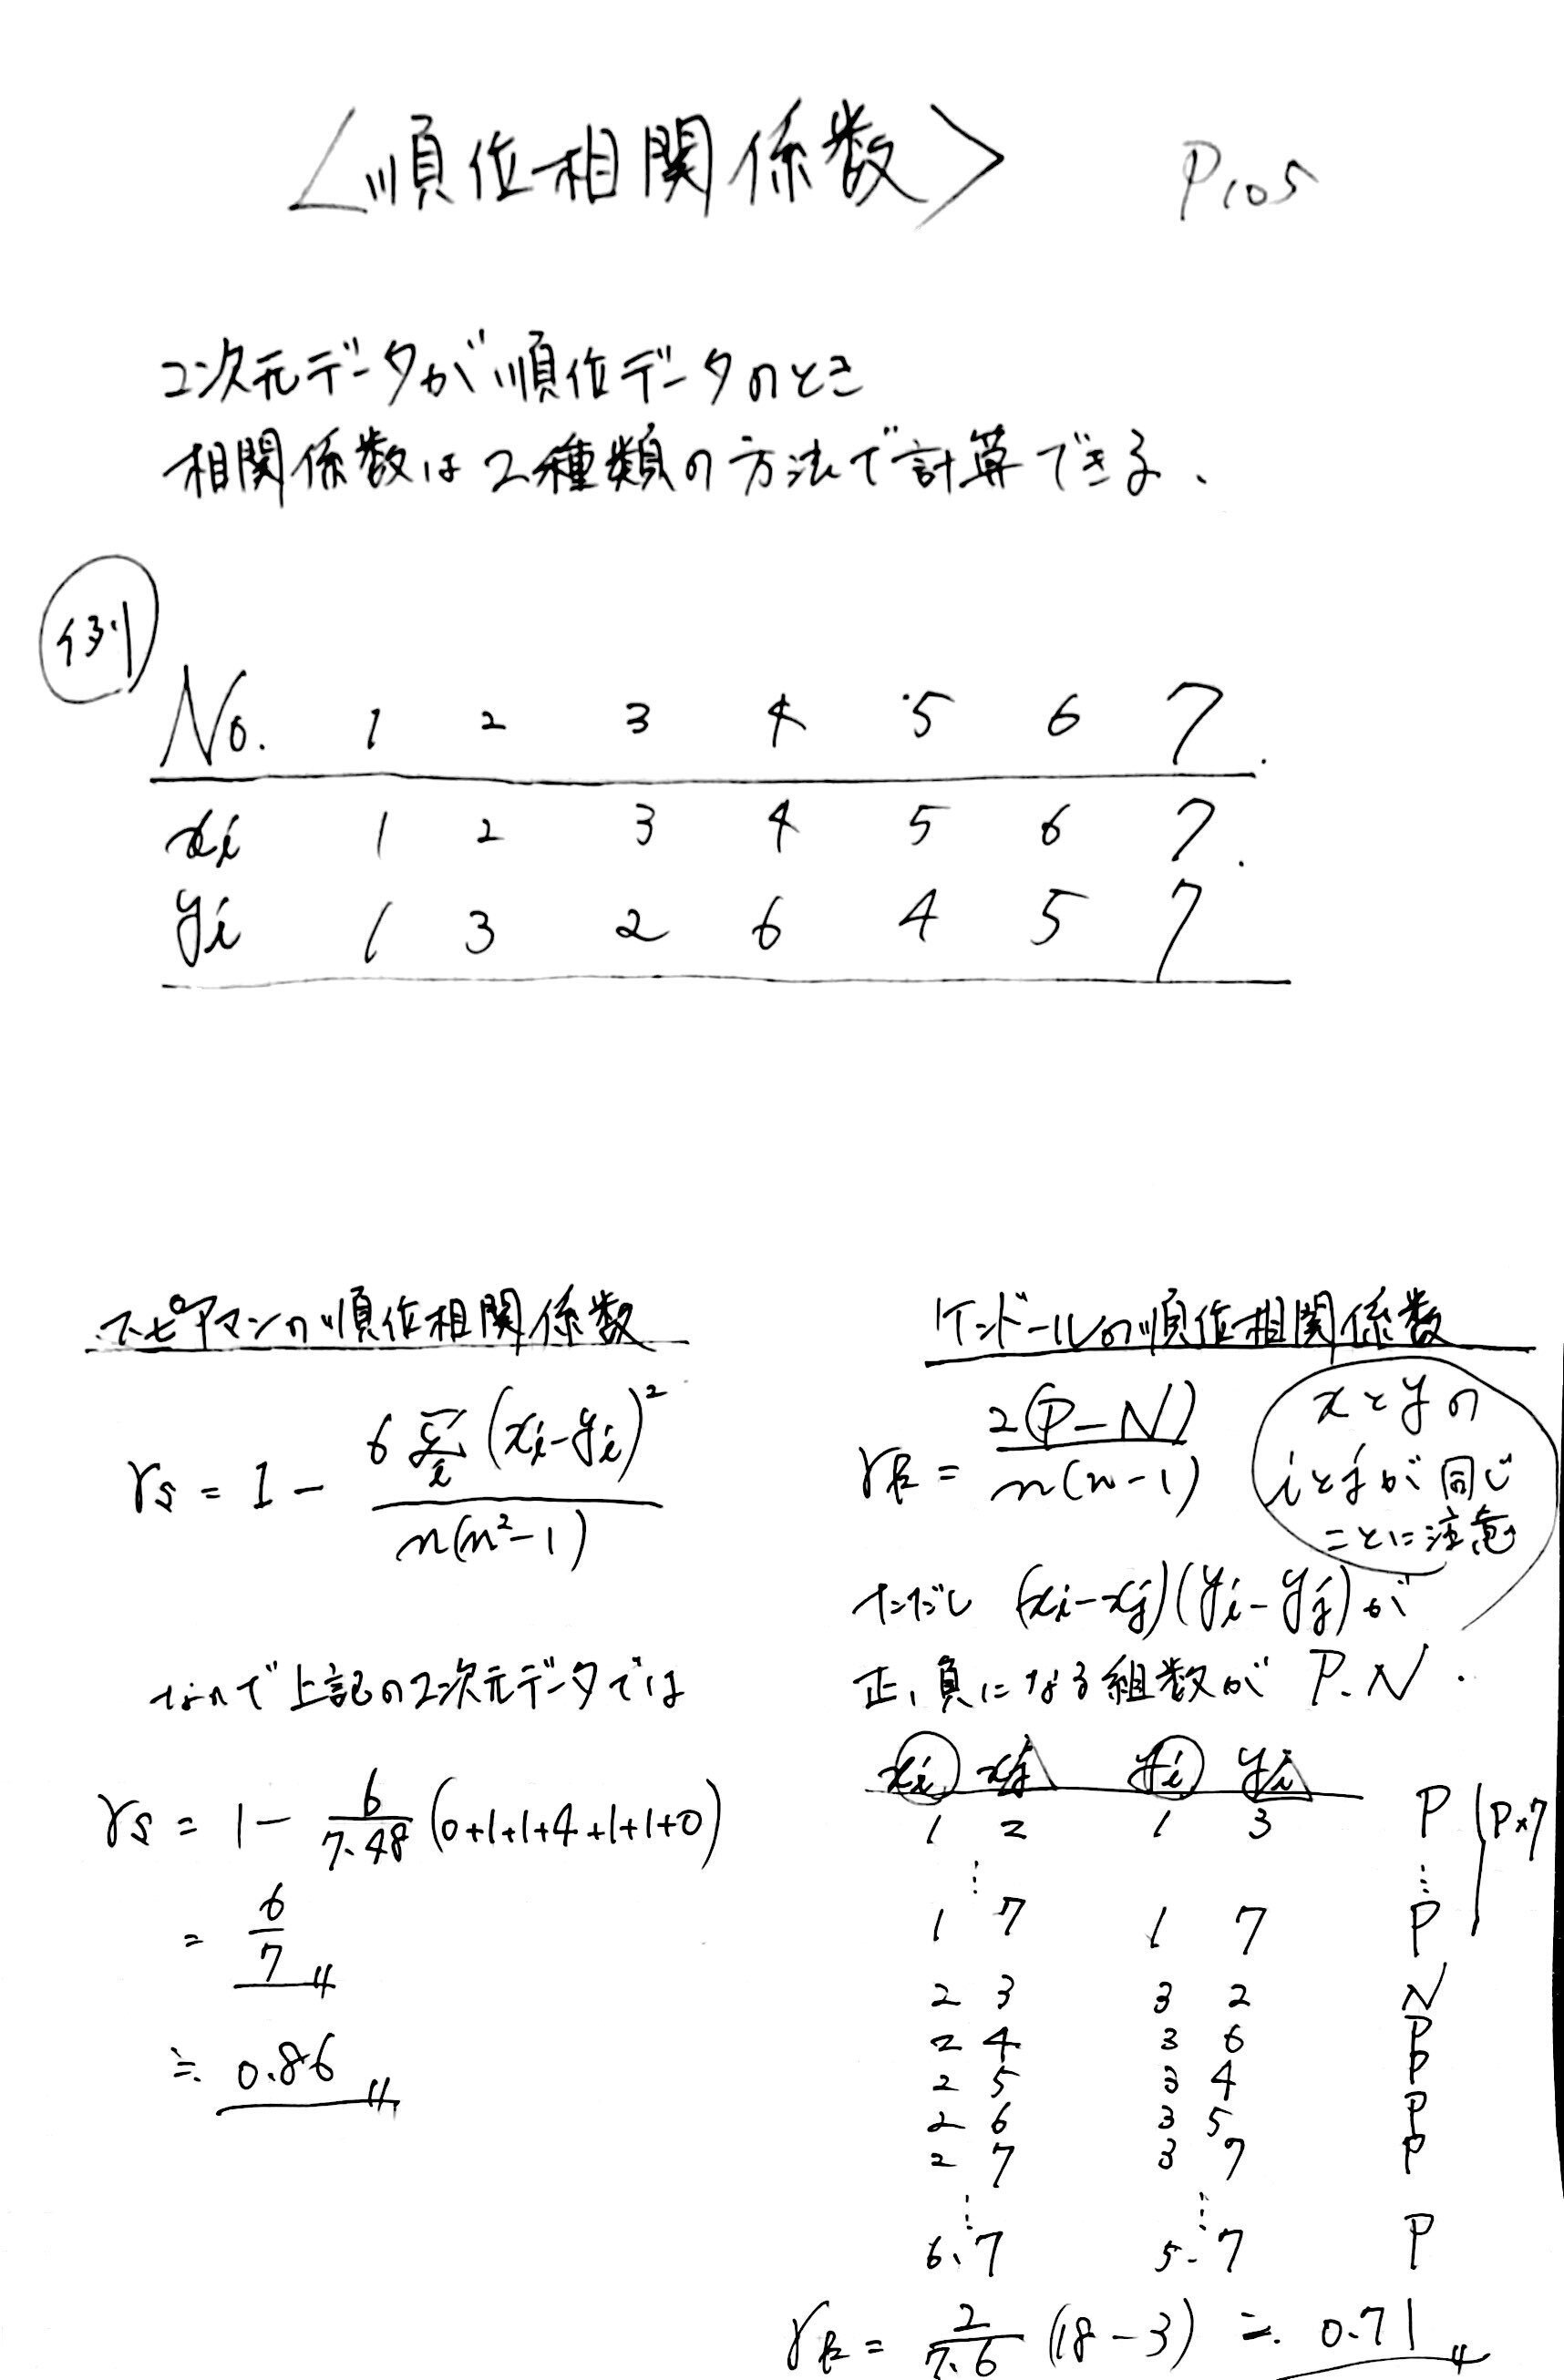 <順位相関係数> P105
2次元データが順位データのとき
相関係数は2種類の方法で計算できる.
例
No. 1 2 3 4 5 6 7.
xi 1 2 3 4 5 6 7.
yi 1 3 2 6 4 5 7
スピアマンの順位相関係数
rs = 1 - 6Σi(xi-yi)² / n(n²-1)
なので上記の2次元データでは
rs = 1 - 6/7・48 (0+1+1+4+1+1+0)
= 6/7
≒ 0.86
ケンドールの順位相関係数
rk = 2(P-N) / n(n-1)
xとyの
iとjが同じ
ことに注意
ただし (xi-xj)(yi-yj)が
正、負になる組数が P、N.
xi xj yi yj
1 2 1 3 P
⋮ ⋮ P×7
1 7 1 7 P
2 3 3 2 N
2 4 3 6 P
2 5 3 4 P
2 6 3 5 P
2 7 3 7 P
⋮ ⋮
6、7 5-7 P
rk = 2/7・6 (18-3) ≒ 0.71